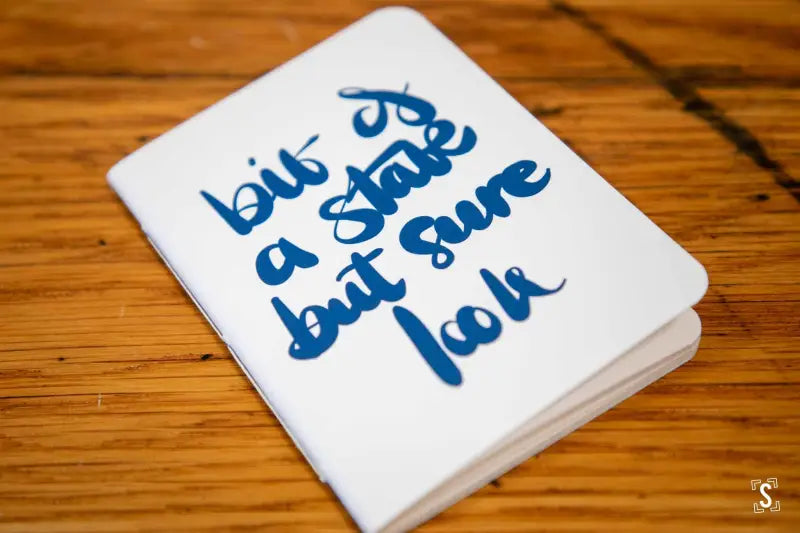 bit of
a state
but sure
look
S